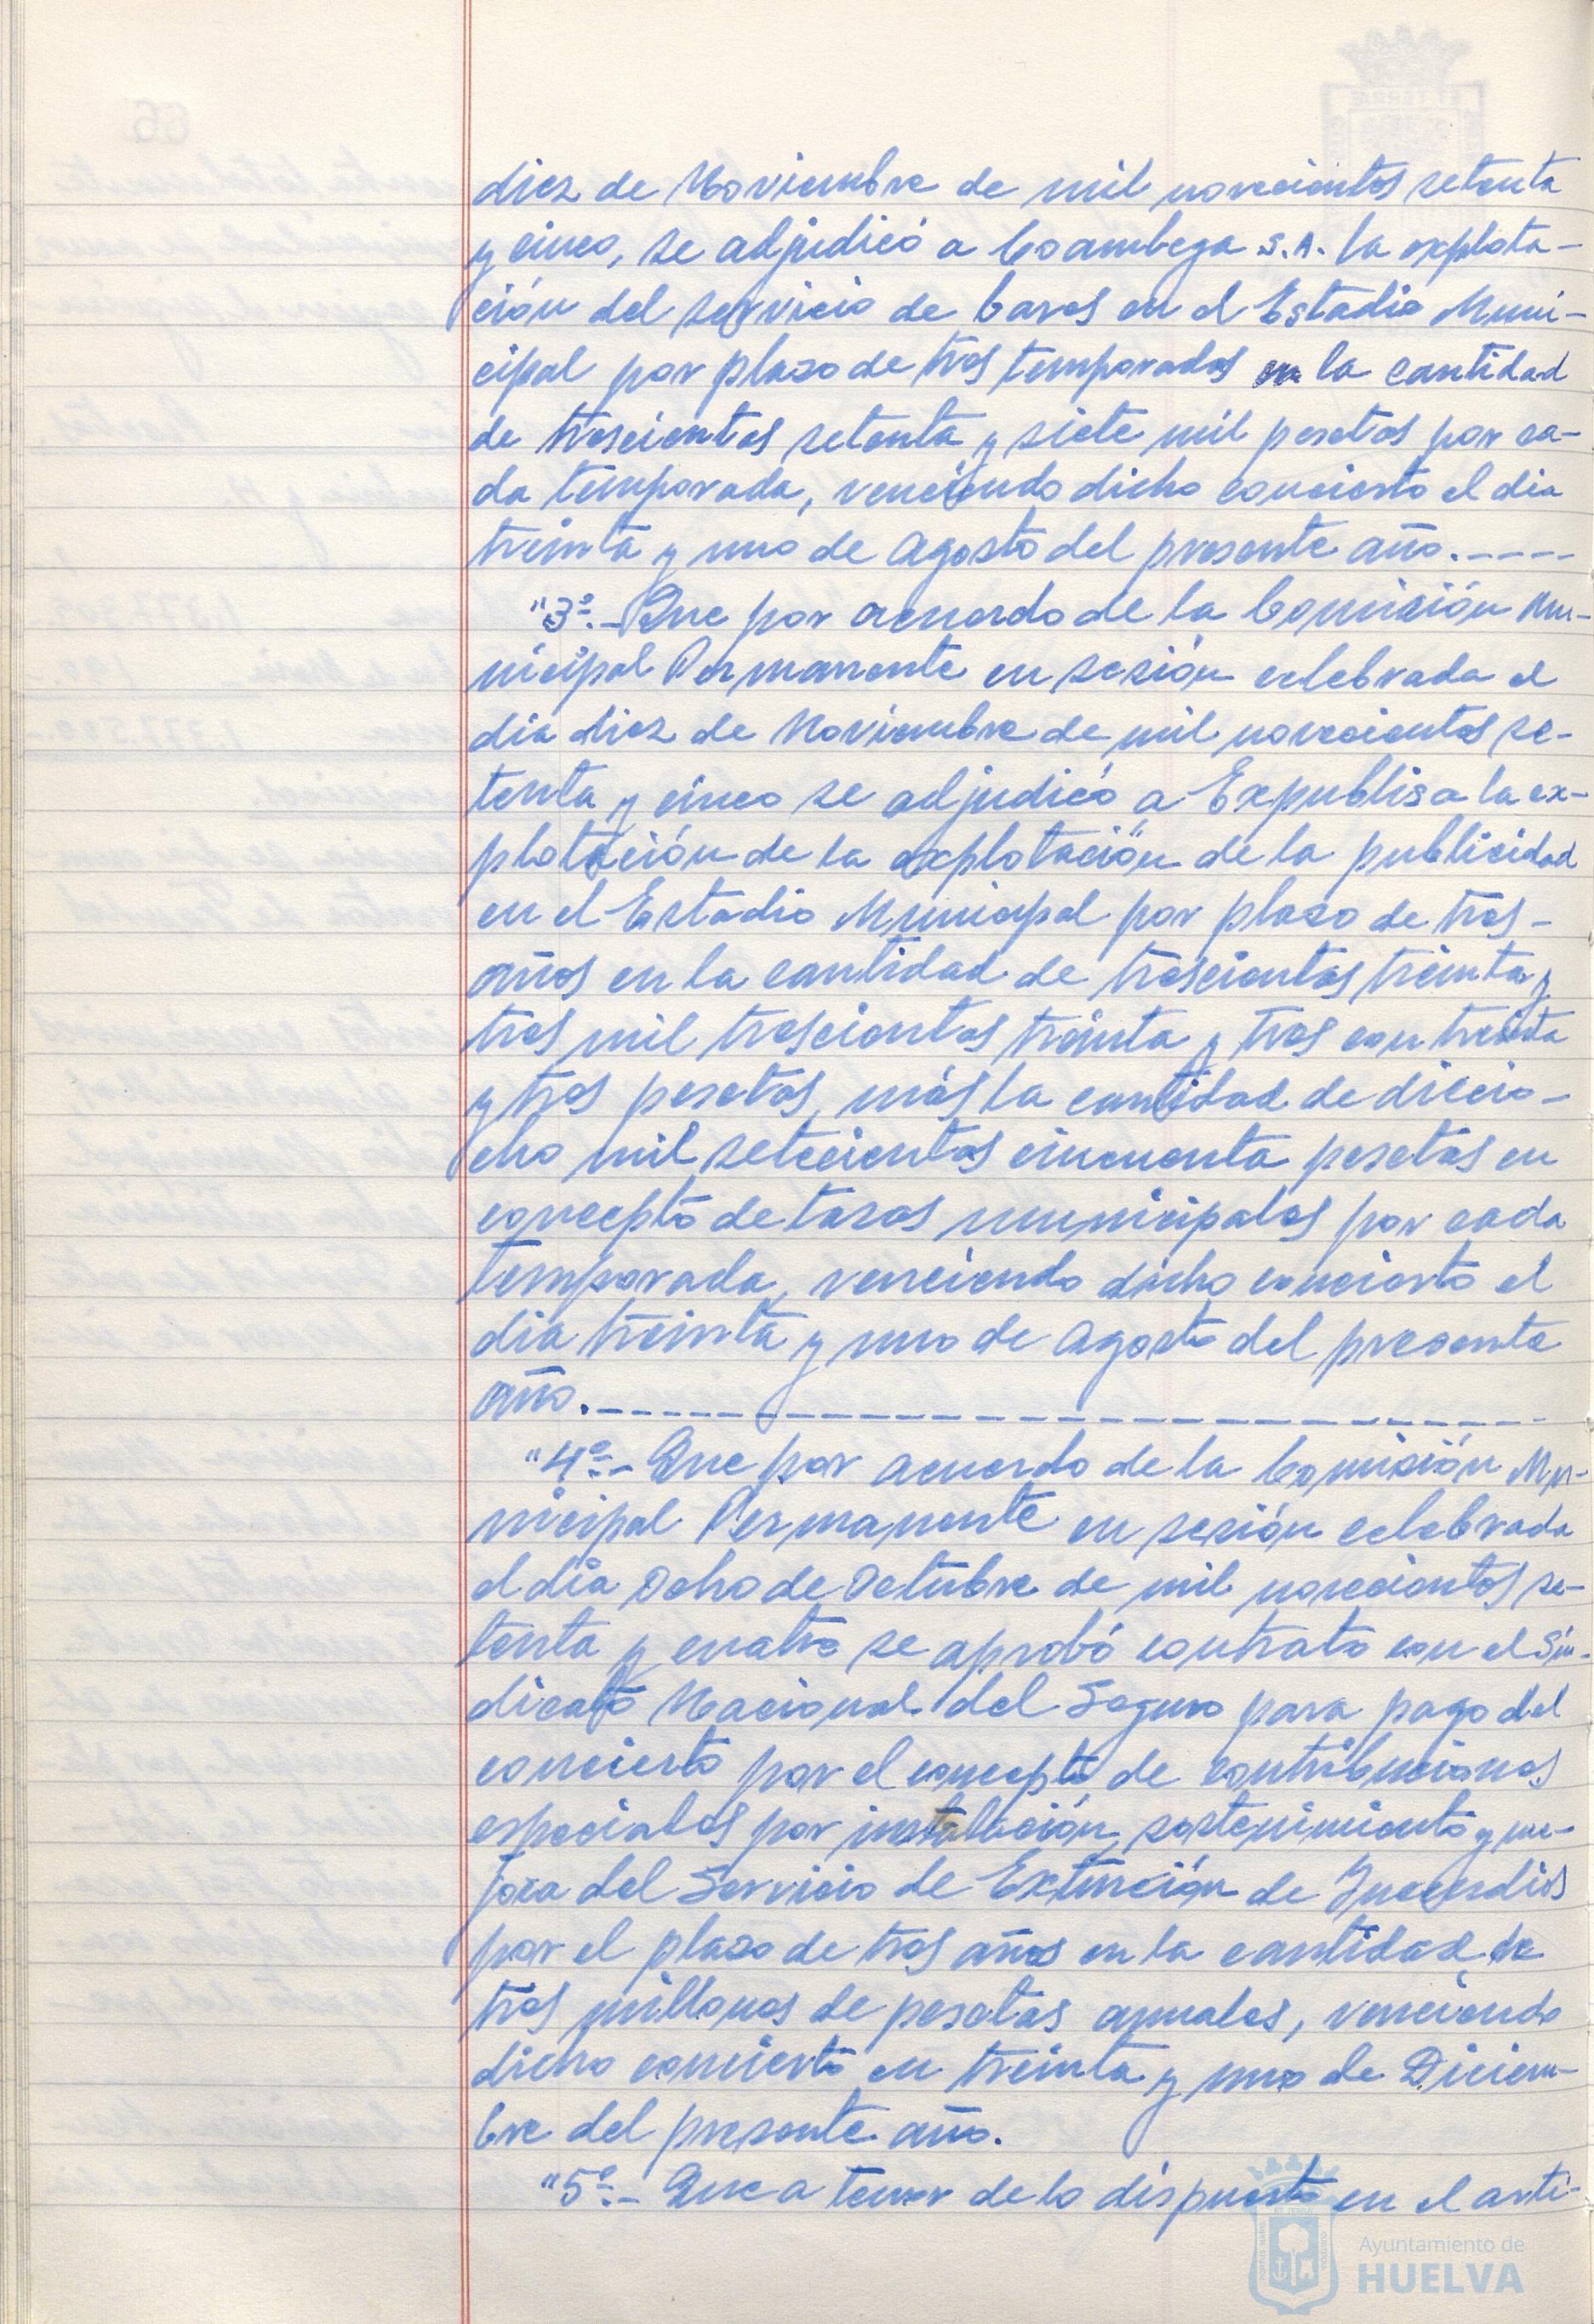 diez de Noviembre de mil novecientos setenta
y cinco, se adjudicó a Coambega S.A. la explota-
ción del servicio de bares en el Estadio Muni-
cipal por plazo de tres temporadas en la cantidad
de trescientas setenta y siete mil pesetas por ca-
da temporada, venciendo dicho concierto el dia
treinta y uno de Agosto del presente año.-----
"3º.- Que por acuerdo de la Comisión Mu-
nicipal Permanente en sesión celebrada el
dia diez de Noviembre de mil novecientos se-
tenta y cinco se adjudicó a Expublisa la ex-
plotación de la explotación de la publicidad
en el Estadio Municipal por plazo de tres-
años en la cantidad de trescientas treinta y
tres mil trescientas treinta y tres con treinta
y tres pesetas, más la cantidad de diecio-
cho mil setecientas cincuenta pesetas en
concepto de tasas municipales por cada
temporada, venciendo dicho concierto el
dia treinta y uno de Agosto del presente
año.------------------------------
"4º.- Que por acuerdo de la Comisión Mu-
nicipal Permanente en sesión celebrada
el dia ocho de Octubre de mil novecientos se-
tenta y cuatro se aprobó contrato con el Sin-
dicato Nacional del Seguro para pago del
concierto por el concepto de contribuciones
especiales por instalación, sostenimiento y me-
jora del Servicio de Extinción de Incendios
por el plazo de tres años en la cantidad de
tres millones de pesetas anuales, venciendo
dicho concierto en treinta y uno de Diciem-
bre del presente año.
"5º.- Que a tenor de lo dispuesto en el artí-
Ayuntamiento de
HUELVA